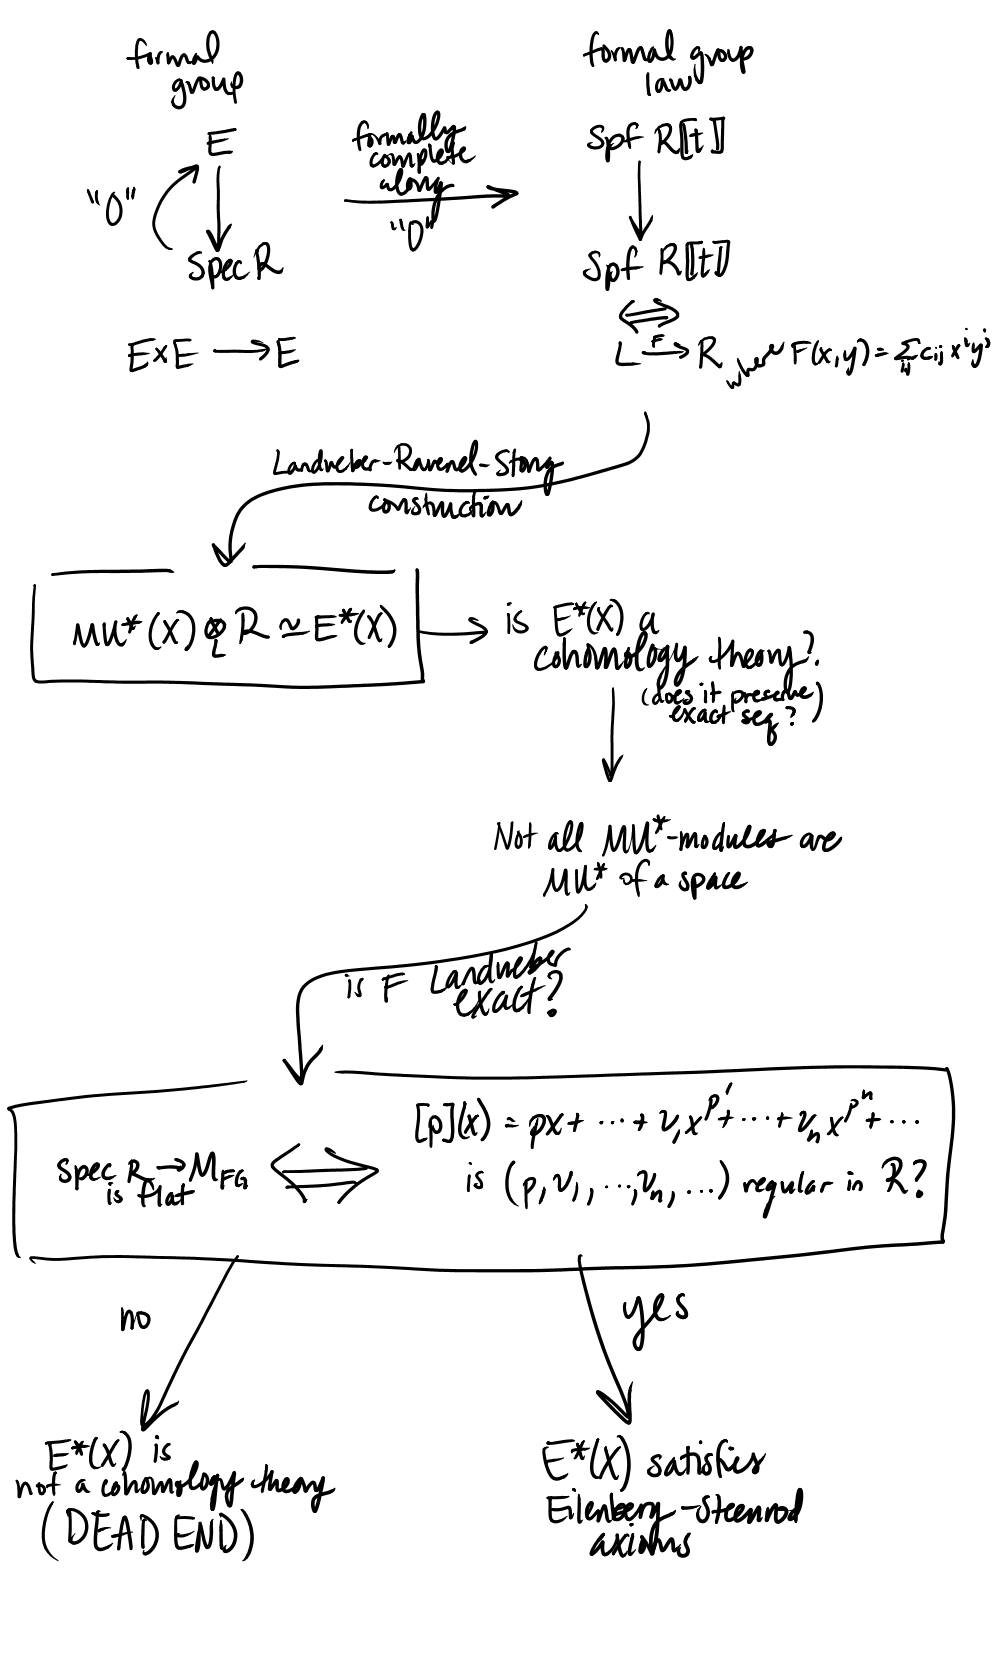 formal
group
E
"0"
Spec R
E×E → E
formally
complete
along
"0"
formal group
law
Spf R[[t]]
Spf R[[t]]
⇔
L →^F R where F(x,y) = Σ_ij c_ij x^i y^j
Landweber-Ravenel-Stong
construction
MU*(X) ⊗_L R ≃ E*(X)
is E*(X) a
cohomology theory?
(does it preserve
exact seq?)
Not all MU*-modules are
MU* of a space
is F Landweber
exact?
Spec R → M_FG
is flat
⇔
[p](x) = px + ··· + v_1 x^p^1 + ··· + v_n x^p^n + ···
is (p, v_1, ..., v_n, ...) regular in R?
no
yes
E*(X) is
not a cohomology theory
(DEAD END)
E*(X) satisfies
Eilenberg-Steenrod
axioms